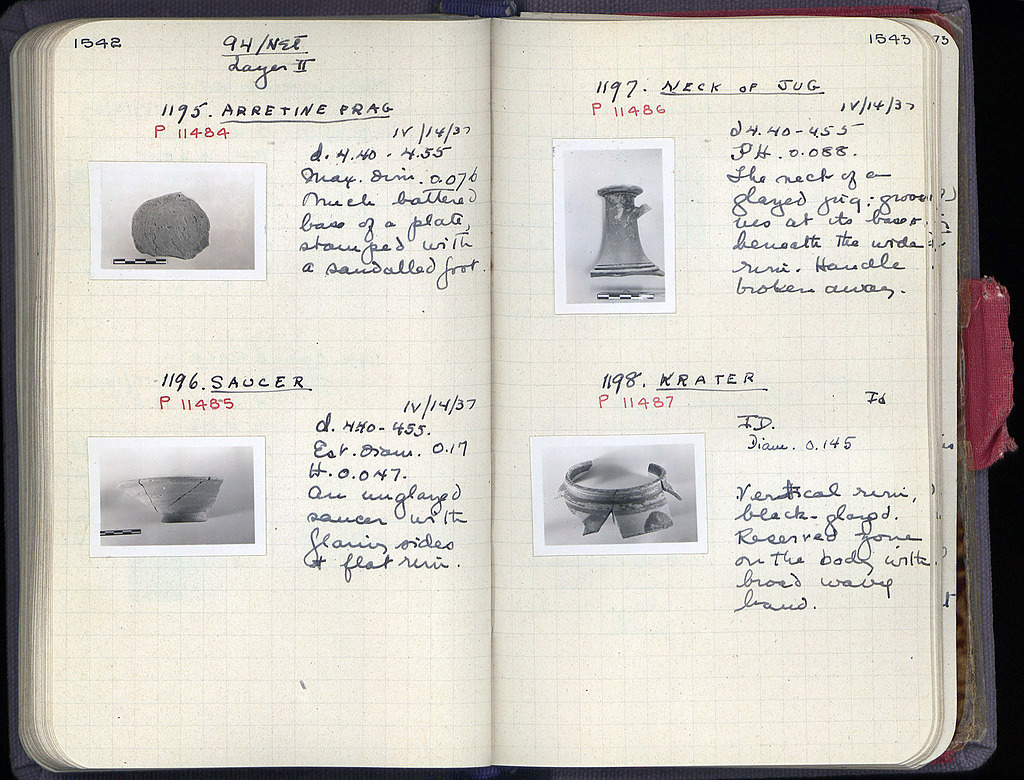 1542
94/ΝΣΤ
Layer II
1195. ARRETINE FRAG
P 11484
IV/14/37
d. 4.40 - 4.55
Max. Dim. 0.076
Much battered
base of a plate,
stamped with
a sandalled foot.
1196. SAUCER
P 11485
IV/14/37
d. 4.40 - 4.55.
Est. Diam. 0.17
H. 0.047.
An unglazed
saucer with
flaring sides
& flat rim.
1543
73
1197. NECK OF JUG
P 11486
IV/14/37
d 4.40 - 4.55
P.H. 0.088.
The neck of a
glazed jug: groov-
at its base &
beneath the wide
rim. Handle
broken away.
1198. KRATER
P 11487
Id
I.D.
Diam. 0.145
Vertical rim,
black-glazed.
Reserved zone
on the body with
broad wavy
band.